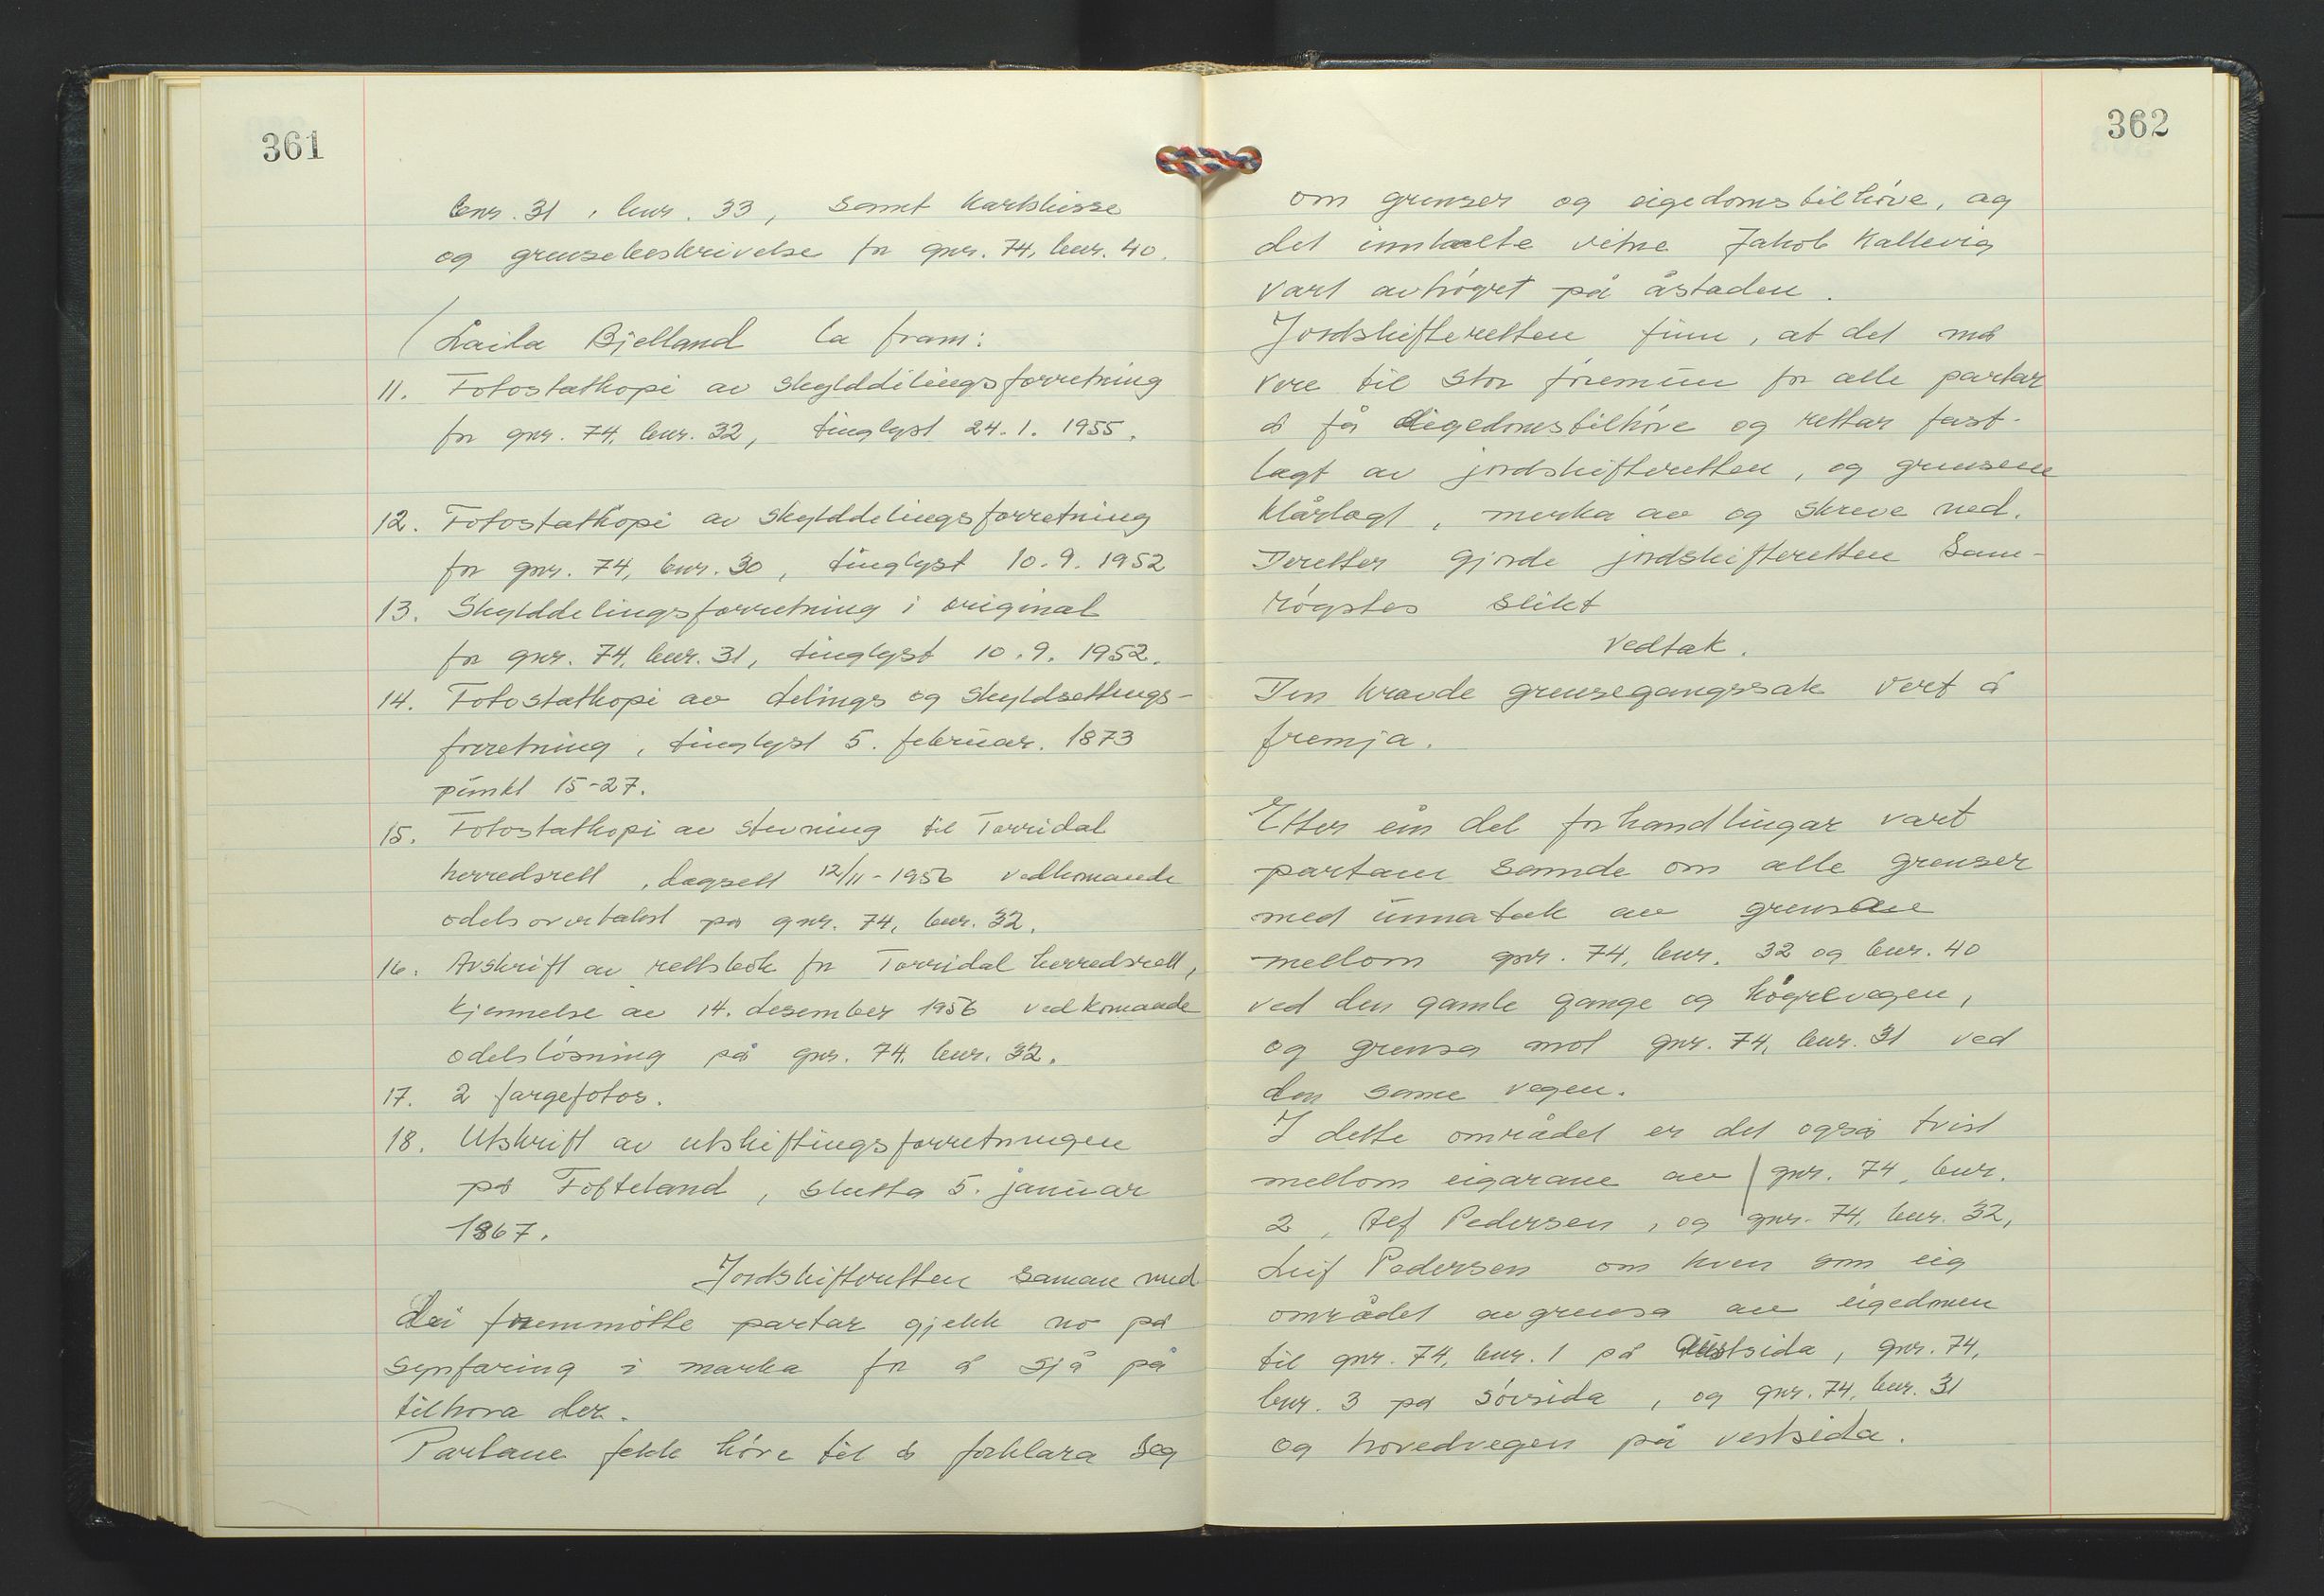 361
bnr. 31, bnr. 33, samt kartskisse
og grensebeskrivelse for gnr. 74, bnr. 40.
Laila Bjelland la fram:
11. Fotostatkopi av skylddelingsforretning
for gnr. 74, bnr. 32, tinglyst 24.1. 1955.
12. Fotostatkopi av skylddelingsforretning
for gnr. 74, bnr. 30, tinglyst 10.9. 1952
13. Skylddelingsforretning i original
for gnr. 74, bnr. 31, tinglyst 10.9. 1952.
14. Fotostatkopi av delings og skyldsettings-
forretning, tinglyst 5. februar. 1873
punkt 15-27.
15. Fotostatkopi av stevning til Torridal
herredsrett, dagsett 12/11-1956 vedkomande
odelsovertakst på gnr. 74, bnr. 32.
16. Avskrift av rettsbok for Torridal herredsrett,
kjennelse av 14. desember 1956 vedkomande
odelslösning på gnr. 74, bnr. 32.
17. 2 fargefotos.
18. Utskrift av utskiftingsforretningen
på Tofteland, slutta 5. januar
1867.
Jordskifteretten saman med
dei fremmötte partar gjekk no på
synfaring i marka for å sjå på
tilhöva der.
Partane fekk höve til å forklara seg
362
om grenser og eigedomstilhöve, og
det innkalte vitne Jakob Kallevig
vart avhöyrt på åstaden.
Jordskifteretten finn, at det må
vere til stor föremun for alle partar
å få eigedomstilhöve og rettar fast-
lagt av jordskifteretten, og grensene
klårlagt, merka av og skreve ned.
Deretter gjorde jordskifteretten sam-
röystes slikt
vedtak.
Den kravde grensegangssak vert å
fremja.
Etter ein del forhandlingar vart
partane samde om alle grenser
med unnatak av grensene
mellom gnr. 74, bnr. 32 og bnr. 40
ved den gamle gange og högrevegen,
og grensa mot gnr. 74, bnr. 31 ved
den same vegen.
I dette området er det også tvist
mellom eigarane av gnr. 74, bnr.
2, Alf Pedersen, og gnr. 74, bnr. 32,
Leif Pedersen om kven som eig
området avgrensa av eigedomen
til gnr. 74, bnr. 1 på austsida, gnr. 74,
bnr. 3 på sörsida, og gnr. 74, bnr. 31
og hovedvegen på vestsida.